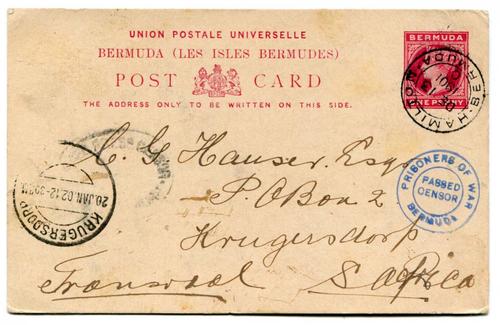 UNION POSTALE UNIVERSELLE
BERMUDA (LES ISLES BERMUDES)
POST CARD
THE ADDRESS ONLY TO BE WRITTEN ON THIS SIDE.
BERMUDA
ONE PENNY
HAMILTON BERMUDA
C. G Hauser. Esq
P.O Box 2
Krugersdorp
Transvaal S Africa
PRISONERS OF WAR
PASSED
CENSOR
BERMUDA
KRUGERSDORP
20 JAN. 02